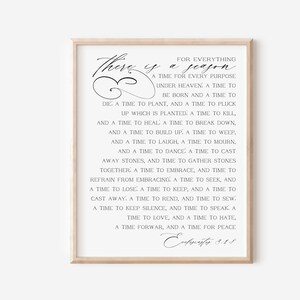 FOR EVERYTHING
there is a season
A TIME FOR EVERY PURPOSE
UNDER HEAVEN. A TIME TO
BE BORN AND A TIME TO
DIE. A TIME TO PLANT, AND A TIME TO PLUCK
UP WHICH IS PLANTED. A TIME TO KILL,
AND A TIME TO HEAL. A TIME TO BREAK DOWN,
AND A TIME TO BUILD UP. A TIME TO WEEP,
AND A TIME TO LAUGH. A TIME TO MOURN,
AND A TIME TO DANCE. A TIME TO CAST
AWAY STONES, AND TIME TO GATHER STONES
TOGETHER. A TIME TO EMBRACE, AND TIME TO
REFRAIN FROM EMBRACING. A TIME TO SEEK, AND
A TIME TO LOSE. A TIME TO KEEP, AND A TIME TO
CAST AWAY. A TIME TO REND, AND TIME TO SEW.
A TIME TO KEEP SILENCE, AND TIME TO SPEAK. A
TIME TO LOVE, AND A TIME TO HATE,
A TIME FORWAR, AND A TIME FOR PEACE
Ecclesiastes 3:1-8